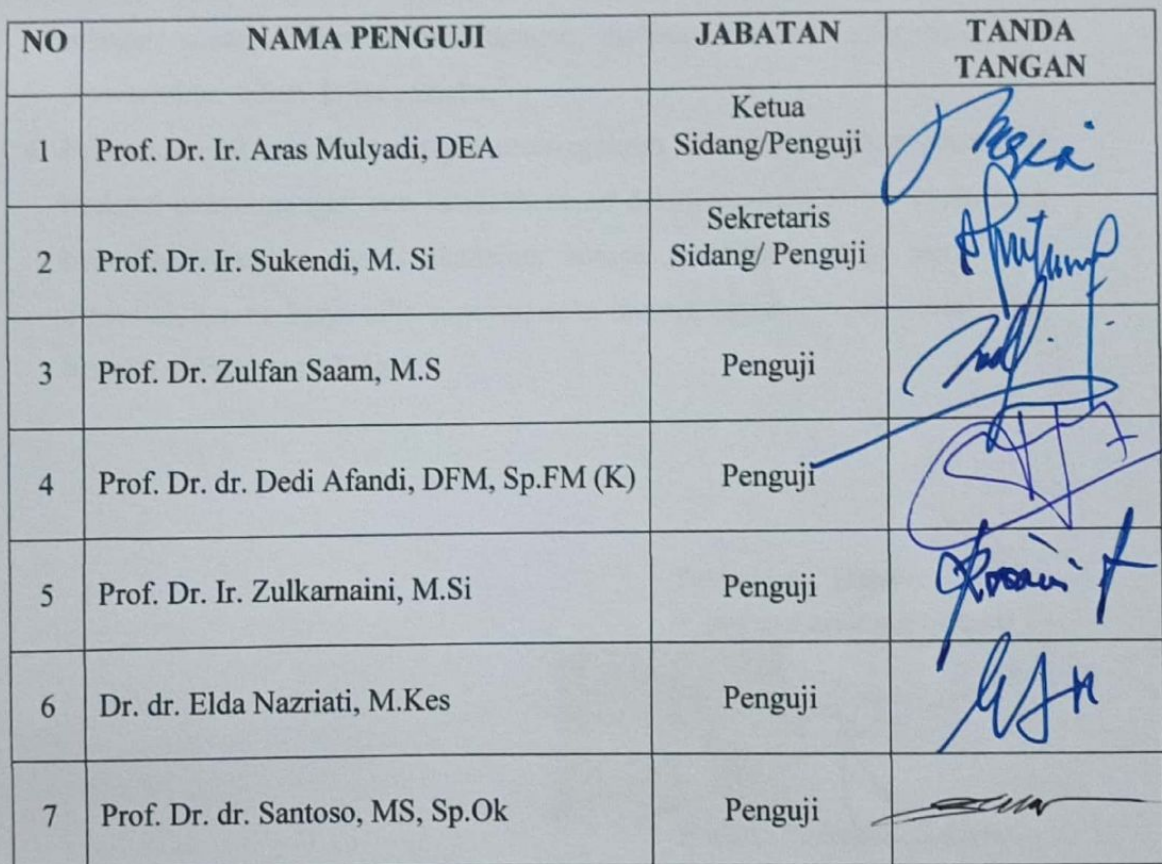 NO NAMA PENGUJI JABATAN TANDA
TANGAN
1 Prof. Dr. Ir. Aras Mulyadi, DEA Ketua
Sidang/Penguji
2 Prof. Dr. Ir. Sukendi, M. Si Sekretaris
Sidang/ Penguji
3 Prof. Dr. Zulfan Saam, M.S Penguji
4 Prof. Dr. dr. Dedi Afandi, DFM, Sp.FM (K) Penguji
5 Prof. Dr. Ir. Zulkarnaini, M.Si Penguji
6 Dr. dr. Elda Nazriati, M.Kes Penguji
7 Prof. Dr. dr. Santoso, MS, Sp.Ok Penguji